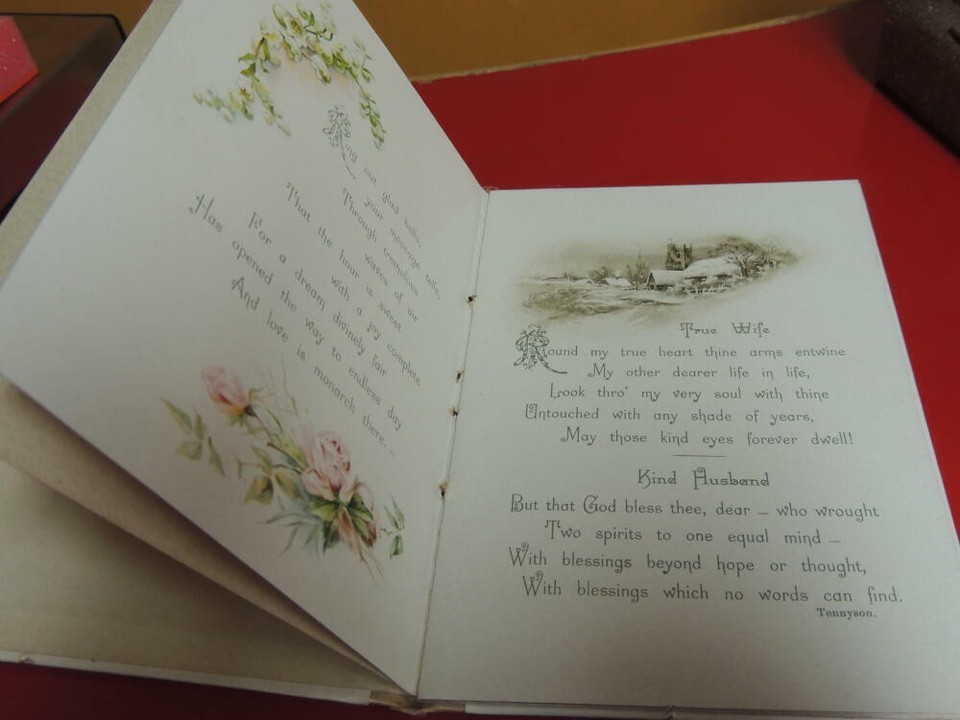 Ring out glad bells,
your message tells
Through tremulous waves of air
That the hour is sweet
For with a joy complete
Has a dream divinely fair
opened the way to endless day
And love is monarch there.—
True Wife
Round my true heart thine arms entwine
My other dearer life in life,
Look thro' my very soul with thine
Untouched with any shade of years,
May those kind eyes forever dwell!
Kind Husband
But that God bless thee, dear — who wrought
Two spirits to one equal mind —
With blessings beyond hope or thought,
With blessings which no words can find.
Tennyson.